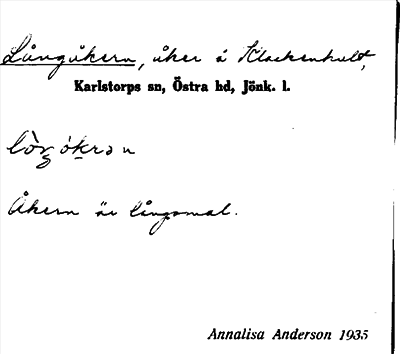 Långåkern, åker å Klockenhult,
Karlstorps sn, Östra hd, Jönk. l.
Åkern är långsmal.
Annalisa Anderson 1935